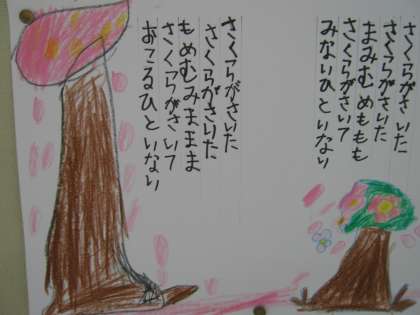 さくらがさいた
さくらがさいた
まみむめももも
さくらがさいて
みないひといない
さくらがさいた
さくらがさいた
もめむみままま
さくらがさいて
おこるひといない